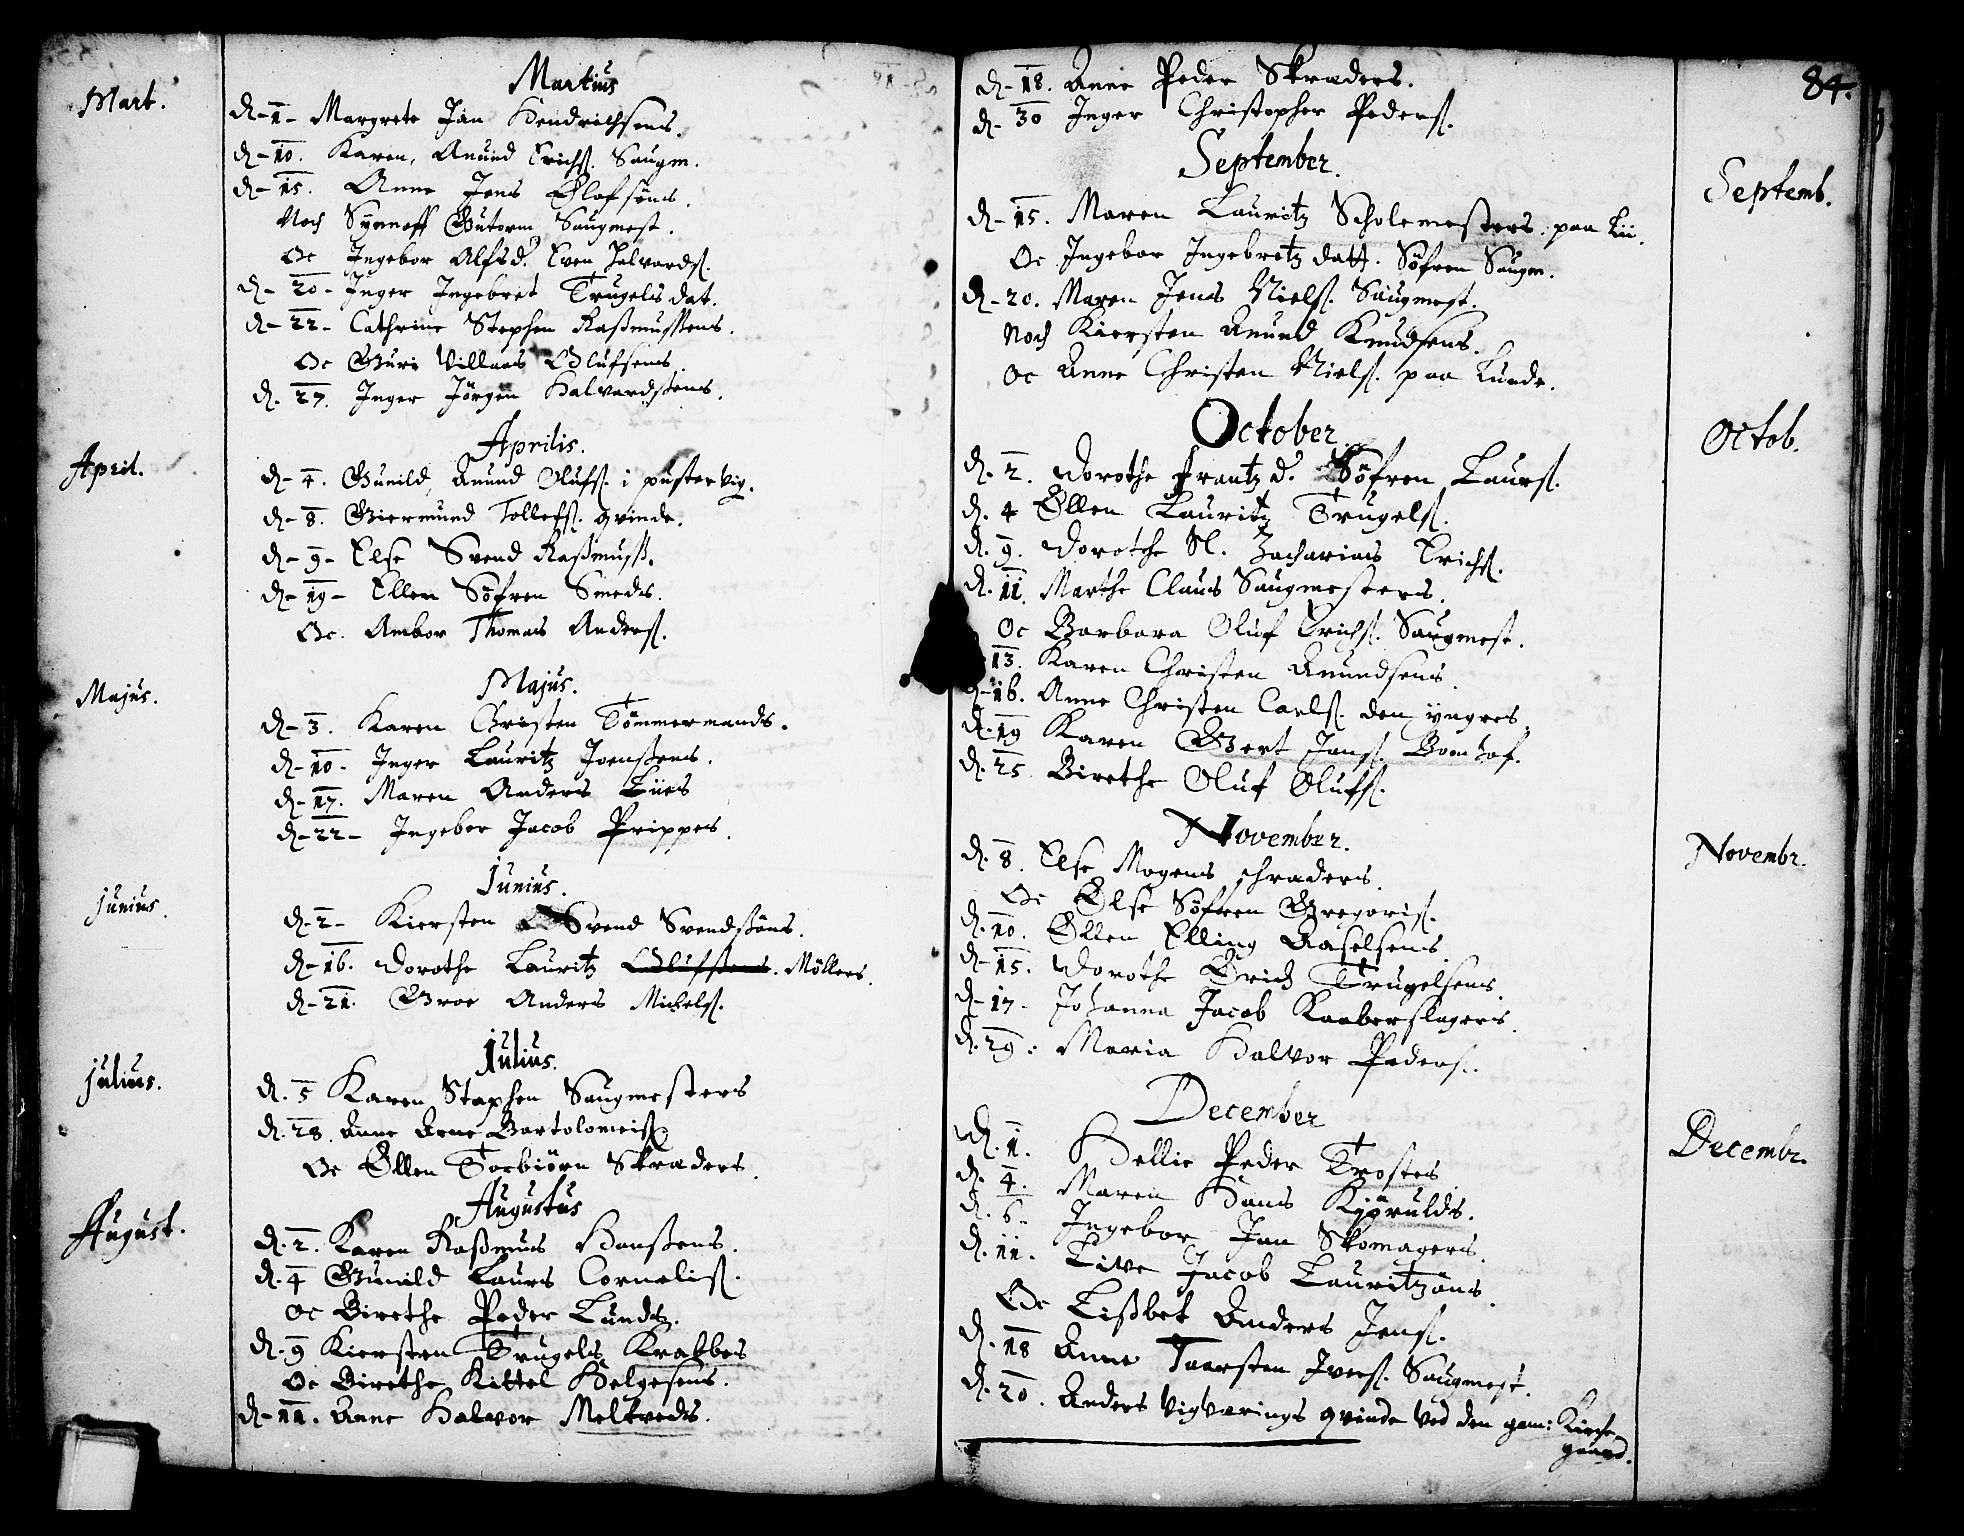 Mart.
Martius
d-1- Margrete Jan Hendrichsens.
d-10. Karen, Amund Erichs. Saugm.
d-15. Anne Jens Olofsøns.
Noch Synnoff Gutorm Saugmest.
Oc Ingebor Alfsd. Even Halvards.
d-20- Inger Ingebret Trugels dat.
d-22- Cathrine Stephen Raßmussens.
Oc Guri Villums Olufsens
d. 27. Inger Jørgen Halvardsens.
April.
Aprilis.
d-4. Gunild, Amund Olufs. i pustervig.
d-8. Giermund Tollefs. qvinde.
d-9- Else Svend Raßmuss.
d-19- Ellen Søfren Smeds.
Oc. Ambor Thomas Anders.
Majus.
Majus.
d-3. Karen Christen Tömmermands.
d-10. Inger Lauritz Joenßens.
d-17. Maren Anders Liies
d-22- Ingebor Jacob Prippes.
Junius.
Junius.
d-2- Kiersten Svend Svendßøns.
d-16. Dorothe Lauritz Olufsens. Möllers.
d-21. Groe Anders Michels.
Julius.
Julius.
d. 5 Karen Staphen Saugmesters
d. 28. Anne Arne Bartolomeis.
Oc Ellen Torbiørn Skraders.
August.
Augustus
d. 2. Karen Raßmus Hanßens.
d. 4 Gunild Laurs Cornelis.
Oc Birethe Peder Lundz.
d. 9 Kiersten Trugels Krabbes
Oc Birethe Kittel Helgesens.
d-11. Anne Halvor Melkveds.
84.
d-18. Anne Peder Skraders.
d-30 Inger Christopher Peders.
Septemb.
September.
d-15. Maren Lauritz Scholemesters. paa Lii.
Oc Ingebor Ingebretz datt. Söfren Saugm.
d-20. Maren Jens Niels. Saugmest.
Noch Kiersten Amund Knudsens.
Oc Anne Christen Niels. paa Lunde.
Octob.
October
d. 2. Dorothe Frantz d. Söfren Laurs.
d. 4 Ellen Lauritz Trugels.
d. 9. Dorothe Sl. Zacharias Erichs.
d. 11. Marthe Claus Saugmesters.
Oc Barbara Oluf Erichs. Saugmest.
13. Karen Christen Amundsens.
d-16. Anne Christen Carls. den yngres.
d. 19 Karen Gert Jans. Bomhof.
d. 25. Birethe Oluf Olufs.
Novembr.
November.
d. 8. Else Mogens schraders.
Oc Else Söfren Gregoris.
d. 10. Ellen Elling Aaselsens.
d-15. Dorothe Erich Trugelsens.
d-17- Johanna Jacob Kaaberslagers.
d. 29. Maria Halvor Peders.
Decembr.
December
d. 1. Hellie Peder Trostes
d. 4. Maren Hans Kjørulds.
d. 6- Ingebor Jan Skomagers.
d. 11. Live Jacob Lauritzøns.
Oc Lißbet Anders Jens.
d. 18 Anne Taarsten Ivers. Saugmest.
d. 20. Anders Vigværings qvinde ved den gam: Kirche
gaard.